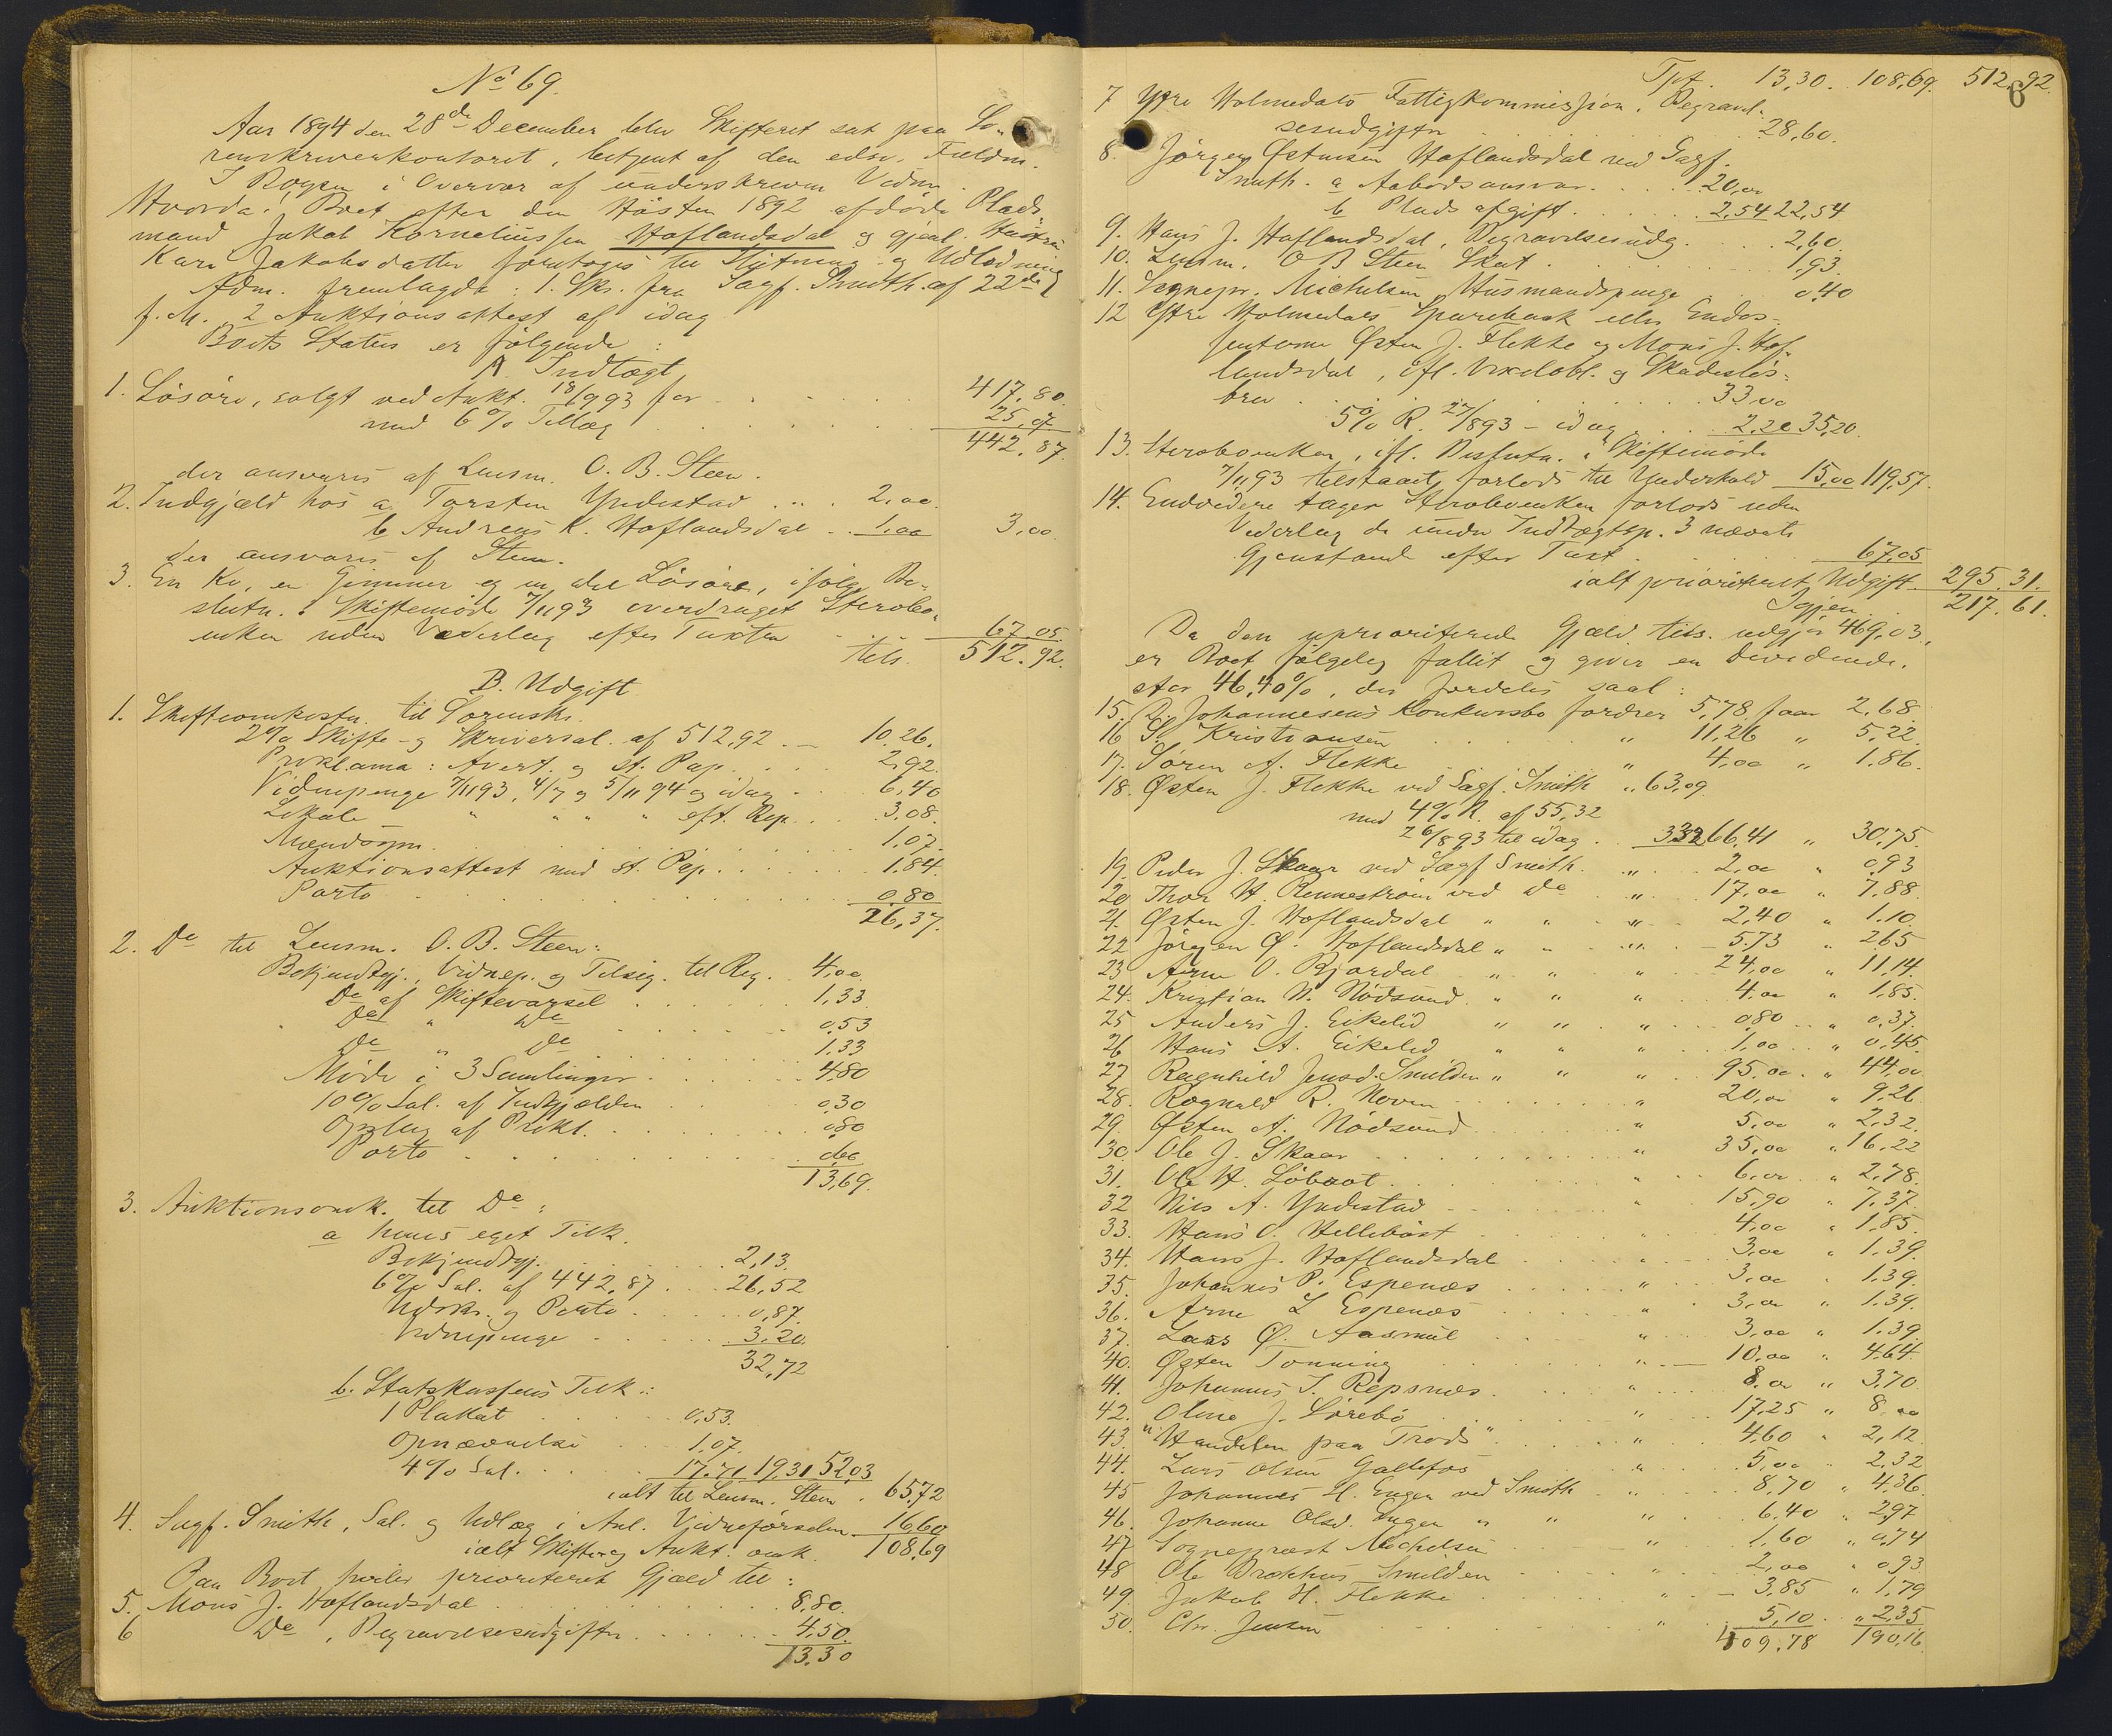 No 69.
Aar 1894 den 28de December blev Skifteret sat paa So-
renskriverkontoret, betjent af den edsv. Fuldm.
I Bogen i Overvær af underskrevne Vidner.
Hvorda: Boet efter den Hösten 1892 afdöde Plads-
mand Jakob Korneliussen Hoflandsdal og gjenl. Hustru
Kari Jakobsdatter foretoges til Slutning og Udlodning
Adm. fremlagde: 1. Skr. fra Sagf. Smith af 22de
f. M. 2 Auktionsattest af idag
Boets Status er fölgende:
A Indtægt
1. Lösöre, solgt ved Aukt. 18/9 93 for . . . 417,80.
med 6% Tillæg . . . 25,07
442,87.
der ansvares af Lensm. O. B. Steen.
2. Indgjæld hos a Torsten Yndestad . . . 2,00
b Andreas K. Hoflandsdal . . 1,00 3,00.
der ansvares af Steen.
3. En Ko, en Gimmer og en del Lösöre, ifölge Be-
slutn. i Skiftemöde 7/11 93 overdraget Sterbo-
enken uden Vederlag efter Taxten . . . 67.05.
tils. 512.92.
B. Udgift
1. Skifteomkostn. til Sorenskr.
2% Skifte- og Skriversal. af 512,92 . 10,26.
Proklama: Avert. og st. Pap. . . . 2,92.
Vidnepenge 7/11 93, 4/7 og 5/11 94 og idag . . 6,40
Lokale " " " " eft. Rep. . . 3,08.
Mændsopn. . . . 1,07.
Auktionsattest med st. Pap. . . . 1,84.
Porto . . . 0,80
26,37.
2. Do til Lensm. O. B. Steen:
Bekjendtgj., Vidnep. og Tilsig. til Reg. . 4,00
Do af Skiftevarsel . . . 1,33
Do " Do . . . 0,53
Do " Do . . . 1,33
Möde i 3 Samlinger . . . 4,80
10% Sal. af Indgjælden . . . 0,30
Opslag af Prokl. . . . 0,80
Porto . . . 0,60
13,69.
3. Auktionsomk. til Do:
a hans eget Tilk.
Bekjendtgj. . . . 2,13.
6% Sal. af 442,87 . . . 26,52
Udskr. og Porto . . . 0,87.
Vidnepenge . . . 3,20.
32,72
b. Statskassens Tilk.:
1 Plakat . . . 0,53.
Opnævnelse . . . 1,07.
4% Sal. . . . 17.71 19,31 52,03
ialt til Lensm. Steen . 65,72
4. Sagf. Smith, Sal. og Udlæg i Anl. Vidneförselen 16,60
ialt Skifte og Aukt. omk. 108,69
Paa Boet hviler prioriteret Gjæld til:
5. Mons J. Hoflandsdal . . . 8,80.
6 Do, Begravelsesudgifter . . . 4,50.
13.30
Tpt. 13,30. 108,69. 512,92.
8
7 Ytre Holmedals Fattigkommission, Begravel-
sesudgifter . . . 28,60.
8. Jörgen Østensen Hoflandsdal ved Sagf.
Smith. a Aabodsansvar . . . 20,00
b Pladsafgift . . . 2,54 22,54
9. Hans J. Hoflandsdal, Begravelsesudg. . . . 2,60.
10. Lensm. O B Steen Skat . . . 1,93.
11. Sognepr. Michelsen, Husmandspenge . . . 0,40
12 Ytre Holmedals Sparebank eller Endos-
senterne Østen J. Flekke og Mons J. Hof-
landsdal, ifl. Vexelobl. og Skadeslös-
brev . . . 33,00
5% R. 27/8 93 - idag . . . 2.20 35,20.
13. Sterboenken, ifl. Beslutn. i Skiftemöde
7/11 93 tilstaaet forlods til Underhold 15,00 119,57.
14. Endvidere tager Sterboenken forlods uden
Vederlag de under Indtægtsp. 3 nævnte
Gjenstande efter Taxt . . . 67,05
ialt prioriteret Udgift 295.31.
Igjen . 217.61.
Da den uprioriterede Gjæld tils. udgjör 469,03,
er Boet fölgelig fallit og giver en Dividende,
stor 46,40%, der fordeles saal:
15. D. Johannesens Konkursbo fordrer 5,78 faar 2,68
16 S. Kristiansen . . . " 11,26 " 5,22
17. Sören A. Flekke . . . " 4,00 " 1.86.
18. Østen J. Flekke ved Sagf. Smith " 63,09
med 4% R. af 55,32
26/8 93 til idag . 3,32 66,41 " 30,75.
19. Peder J. Skaar ved Sagf Smith . " . 2,00 " 0,93
20 Thor H. Rennestraum ved Do " . 17,00 " 7,88
21. Østen J. Hoflandsdal " " " 2,40 " 1.10
22 Jörgen Ø. Hoflandsdal " " " 5.73 " 2,65
23 Arne O. Bjordal " " " 24,00 " 11,14.
24. Kristian N. Nödsund " " " 4,00 " 1,85.
25 Anders J. Eikelid " " " 0,80 " 0,37.
26 Hans A. Eikelid " " " 1,00 " 0,45.
27 Ragnhild Jensd. Smilden " " " 95.00 " 44,00
28. Rognald R. Noven . . . " 20,00 " 9,26
29. Østen A. Nödsund . . . " 5,00 " 2,32.
30. Ole J. Skaar . . . " 35,00 " 16.22
31. Ole H. Löbaat . . . " 6,00 " 2,78.
32 Nils A. Yndestad . . . " 15,90 " 7,37.
33. Hans O. Hellebost . . . " 4,00 " 1,85.
34. Hans J. Hoflandsdal . . . " 3,00 " 1.39.
35. Johannes P. Espenæs . . . " 3,00 " 1.39.
36. Arne L Espenæs . . . " 3,00 " 1.39.
37. Lars Ø. Aasmul . . . " 3,00 " 1.39.
40. Østen Tonning . . . " 10,00 " 4.64.
41. Johannes I. Repsnæs . . . " 8,00 " 3,70
42. Oline J. Sörebö . . . " 17,25 " 8,00
43. "Handelen paa Trods" . . . " 4,60 " 2,12
44. Lars Olsen Gallefos . . . " 5,00 " 2.32
45 Johannes H. Engen ved Smith . " 8,70 " 4,36.
46. Johanne Olsd. Engen " " " 6.40 " 2,97
47 Sogneprest Michelsen . . . " 1,60 " 0,74
48 Ole Brækhus Smilden . . . " 2,00 " 0,93
49 Jakob H. Flekke . . . " 3,85 " 1,79
50. Chr. Jensen . . . " 5,10 " 2,35
409.78 190,16